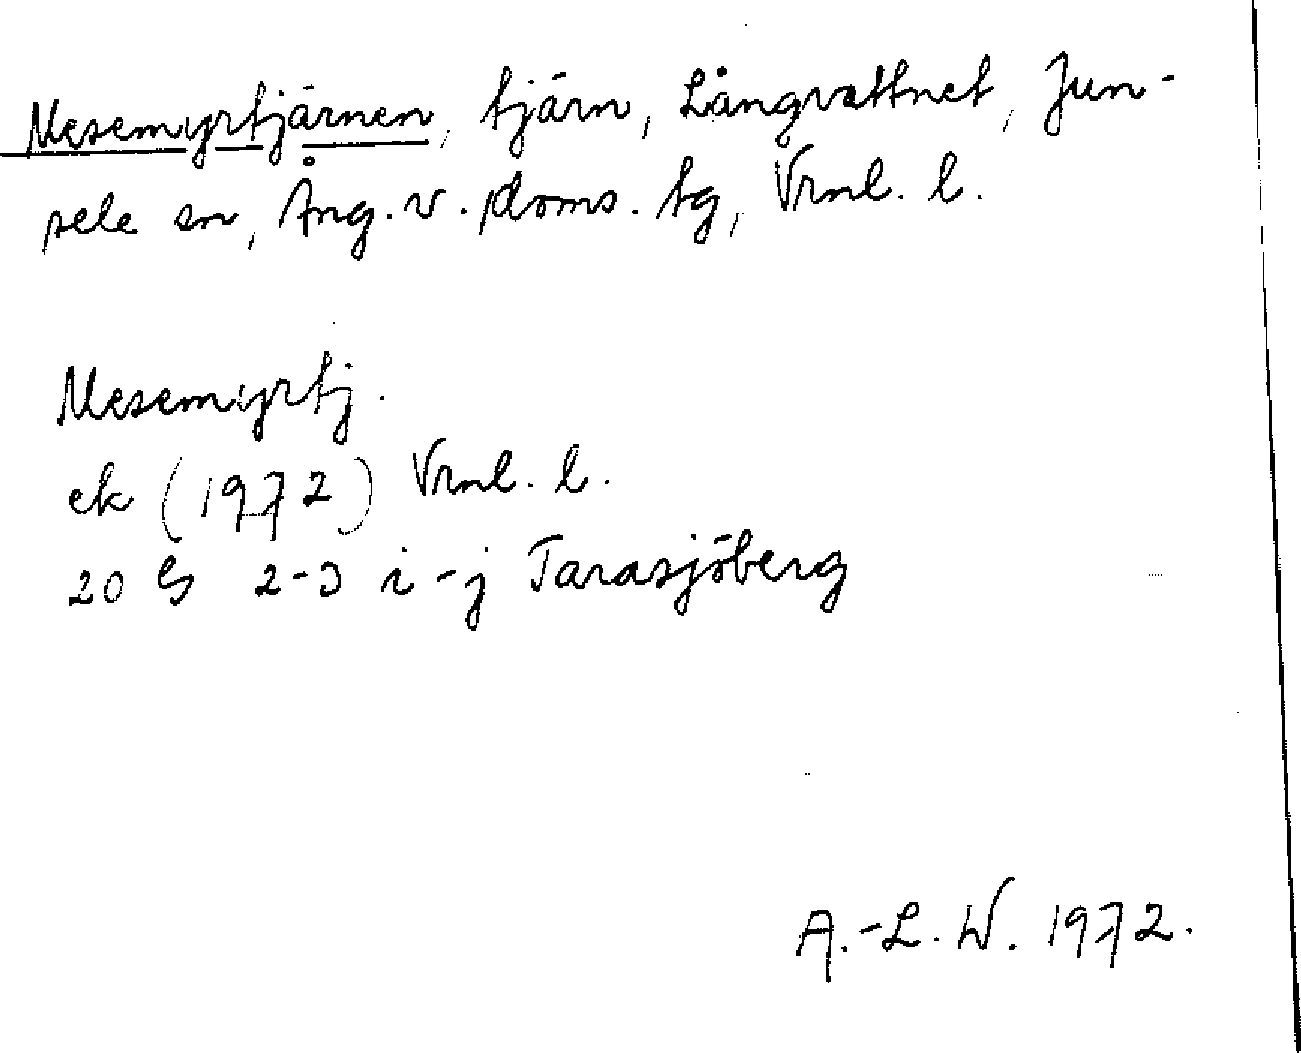 Mesemyrtjärnen, tjärn, Långvattnet, Jun-
sele sn, Ång. v. doms. tg, Vrnl. l.
Mesemyrtj.
ek (1972) Vrnl. l.
20 G 2-3 i-j Tarasjöberg
A.-L. W. 1972.